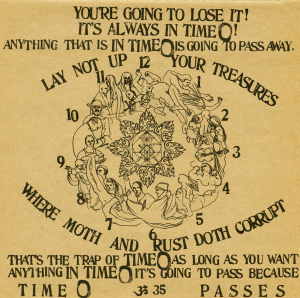 YOU'RE GOING TO LOSE IT!
IT'S ALWAYS IN TIME!
ANYTHING THAT IS IN TIME IS GOING TO PASS AWAY.
LAY NOT UP YOUR TREASURES
12
11 1
10 2
9 3
8 4
7 5
6
WHERE MOTH AND RUST DOTH CORRUPT
THAT'S THE TRAP OF TIME AS LONG AS YOU WANT
ANYTHING IN TIME IT'S GOING TO PASS BECAUSE
TIME ॐ 35 PASSES